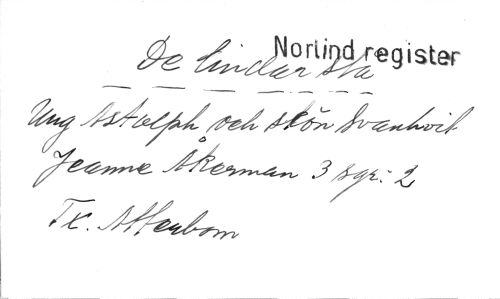 Norlind register
De lindar stå
Ung Astolph och skön Svanhvit
Jeanne Åkerman 3 sgr: 2
Tx. Atterbom